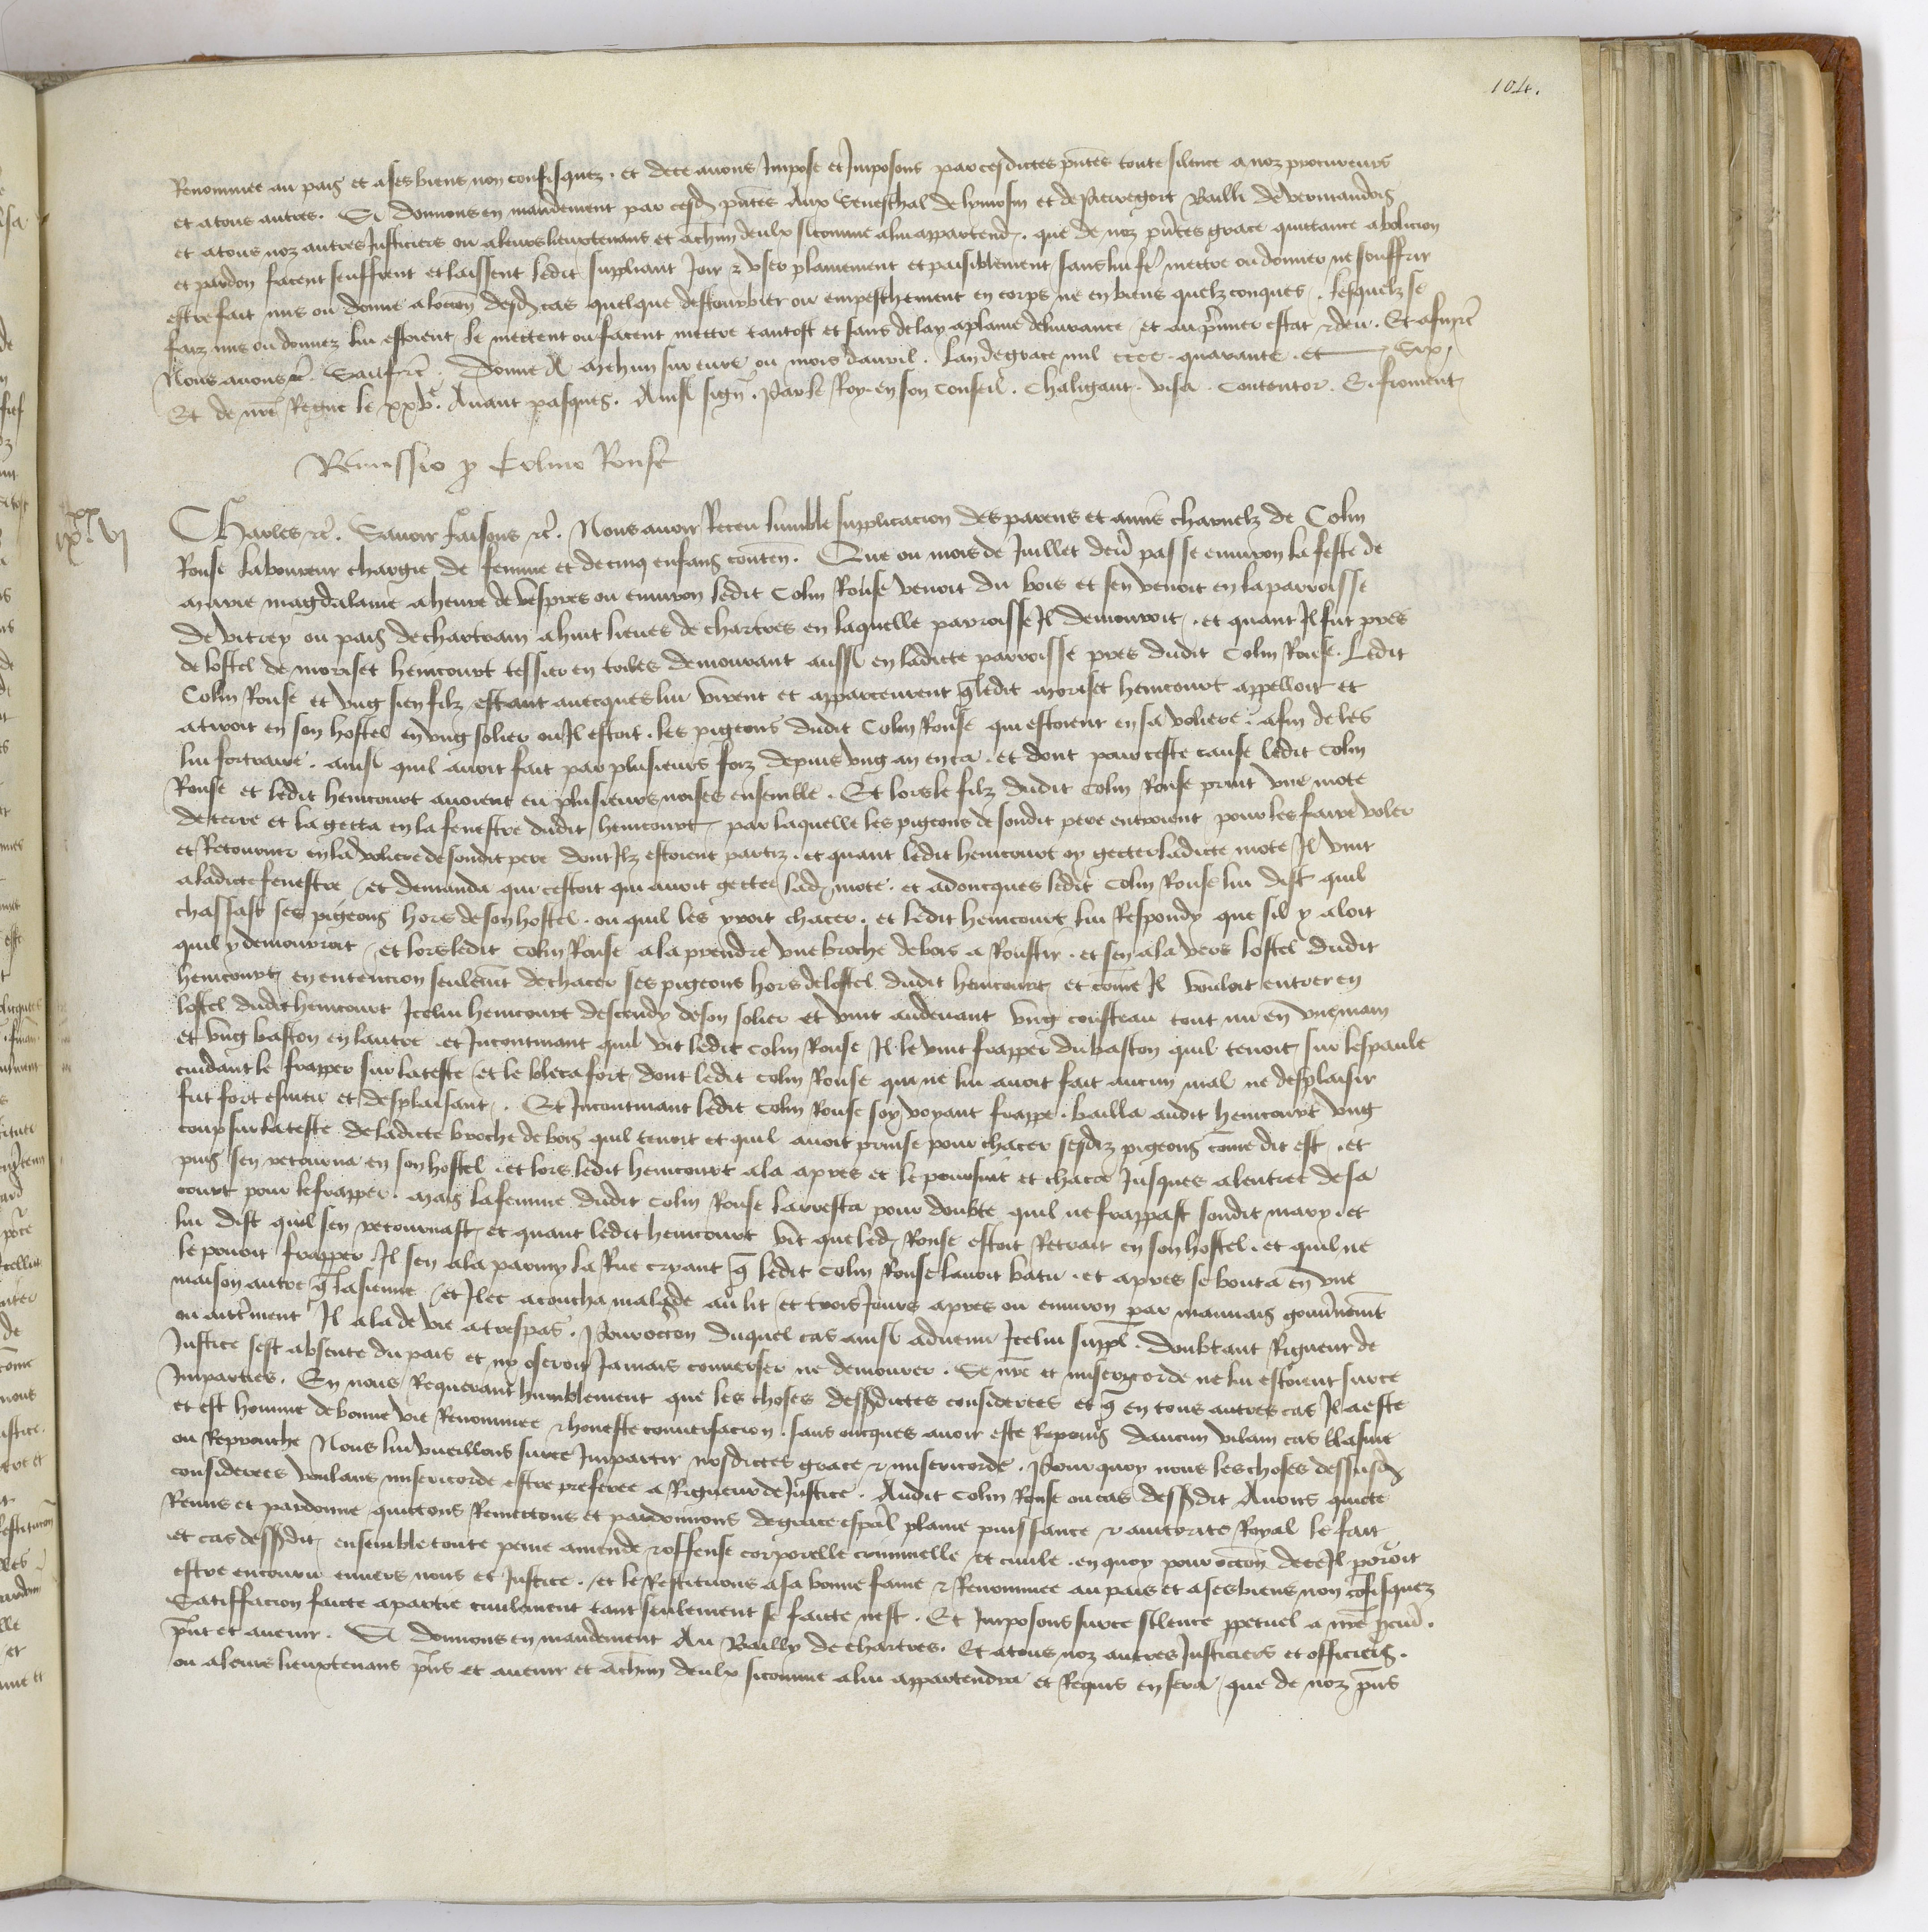 104.
Renommee au pais et a ses biens non confisquez . et de ce avons Impose et Imposons par cesdictes pñtes toute silence a noz procureurs
et a tous autres . Si donnons en mandement par cesd pñtes Aux Seneschal de lymosin et de Pierregort Bailli de vermandois
et a tous noz autres Justiciers ou a leurs lieuxtenans et a chũn deulx si comme a lui appartend . que de noz pñtes grace quittance abolicion
et pardon facent seuffrent et laissent ledit suppliant Joir & user plainement et paisiblement sans lui fẽ mettre ou donner ne souffrir
estre fait mis ou donne a loccõn desd cas quelque destourbier ou empeschement en corps ne en biens quelzconques . lesquelz se
faiz mis ou donnez lui estoient le mettent ou facent mettre tantost et sans delay a plaine delivrance et au pr̃mier estat & deu . Et afin &c̃
Nous avons &c̃ . Sauf &c̃ . Donne A Mehun sur evre ou mois davril . Lan de grace mil cccc . quarante . et Six
Et de nr̃e Regne le xxvᵉ . Avant pasques . Ainsi signe . Par le Roy en son conseil . Chaligant . visa . Contentor . E. froment
Remissio p Colino Rouse
ixˣˣ vj
Charles &c̃ . Savoir faisons &c̃ . Nous avoir Receu lumble supplicacion des parens et amis charnelz de Colin
Rouse laboureur chargie de femme et de cinq enfans conten . Que ou mois de Juillet deñ passe environ la feste de
Marie magdalaine a heure de vespres ou environ ledit Colin Rouse venoit du bois et sen venoit en la parroisse
De vitrey ou pais de chartrain a huit lieues de chartres en laquelle parroisse Il demouroit . et quant Il fut pres
de lostel de moriset hemcourt tessier en toiles demourant aussi en ladicte parroisse pres dudit Colin Rouse . Ledit
Colin Rouse et ung sien filz estant avecques lui virent et apparceurent q̃ ledit moriset hemcourt appelloit et
atiroit en son hostel en ung solier ou Il estoit . les pigeons dudit Colin Rouse qui estoient en sa voliere . afin de les
lui fortraire . ainsi quil avoit fait par plusieurs foiz depuis ung an en ca . et dont pour ceste cause ledit Colin
Rouse et ledit hemcourt avoient eu plusieurs noises ensemble . Et lors le filz dudit Colin Rouse print une mote
de terre et la getta en la fenestre dudit hemcourt par laquelle les pigeons de sondit pere entroient pour les faire voler
et Retourner en la voliere de sondit pere dont Ilz estoient partiz . et quant ledit hemcourt oy getter ladicte mote Il vint
a ladicte fenestre et demanda qui cestoit qui avoit gettee lad mote . et adoncques ledit Colin Rouse lui dist quil
chassast ses pigeons hors de son hostel . ou quil les yroit chacer . et ledit hemcourt lui Respondy que sil y aloit
quil y demourroit et lors ledit Colin Rouse ala prendre une broche de bois a Roustir . et sen ala vers lostel dudit
hemcourt en entencion seulem̃t de chacer ses pigeons hors de lostel dudit hemcourt et com̃e Il vouloit entrer en
lostel dudit hemcourt Icelui hemcourt descendy de son solier et vint audevant ung cousteau tout nu en une main
et ung baston en lautre . et Incontinant quil vit ledit Colin Rouse Il le vint frapper du baston quil tenoit sur lespaule
cuidant le frapper sur la teste et le bleca fort dont ledit Colin Rouse qui ne lui avoit fait aucun mal ne desplaisir
fut fort esmeu et desplaisant . Et Incontinant ledit Colin Rouse soy voyant frappe . bailla audit hemcourt ung
coup sur la teste de ladicte broche de bois quil tenoit et quil avoit prinse pour chacer sesdiz pigeons com̃e dit est . et
puis sen retourna en son hostel . et lors ledit hemcourt ala apres et le poursuit et chaca Jusques a lentree de sa
court pour le frapper . Mais la femme dudit Colin Rouse larresta pour doubte quil ne frappast sondit mary . et
lui dist quil sen retournast et quant ledit hemcourt vit que led Rouse estoit Retrait en son hostel . et quil ne
le povoit frapper Il sen ala parmy la Rue cryant q̃ ledit Colin Rouse lavoit batu . et apres se bouta en une
maison autre q̃ la sienne et Ilec acoucha malade au lit et trois Jours apres ou environ par mauvais gouvernem̃t
ou autr̃ment Il ala de vie a trespas . Pour occõn duquel cas ainsi advenu Icelui suppl̃ . doubtant Rigueur de
Justice sest absente du pais et ny oseroit Jamais converser ne demourer . Se nr̃e et misericorde ne lui estoient sur ce
Imparties . En nous Requerant humblement que les choses dessusdictes considerees et q̃ en tous autres cas Il a este
et est homme de bonne vie Renommee & honeste conversacion . sans oncques avoir este Reprins daucun vilain cas blasme
ou Reprouche Nous lui vueillons sur ce Impartir nosdictes grace & misericorde . Pour quoy nous les choses dessusd
considerees voulans misericorde estre preferee a Rigueur de Justice . Audit Colin Rouse ou cas dessusdit Avons quicte
Remis et pardonne quittons Remettons et pardonnons de grace espãl plaine puissance & auctorite Royal le fait
et cas dessusdit ensemble toute peine amende & offense corporelle criminelle et civile . en quoy pour occõn de ce Il porroit
estre encouru envers nous et Justice . et le Restituons a sa bonne fame & Renommee au pais et a ses biens non cõfisquez
Satisfacion faicte a partie civilement tant seulement se faicte nest . Et Imposons sur ce silence ppetuel a nr̃e pcur̃ .
pñt et avenir . Si donnons en mandement Au Bailly de chartres . Et a tous noz autres Justiciers et officiers .
ou a leurs lieuxtenans pñs et avenir et a chũn deulx sicomme a lui appartendra et Requis en sera que de noz pñs